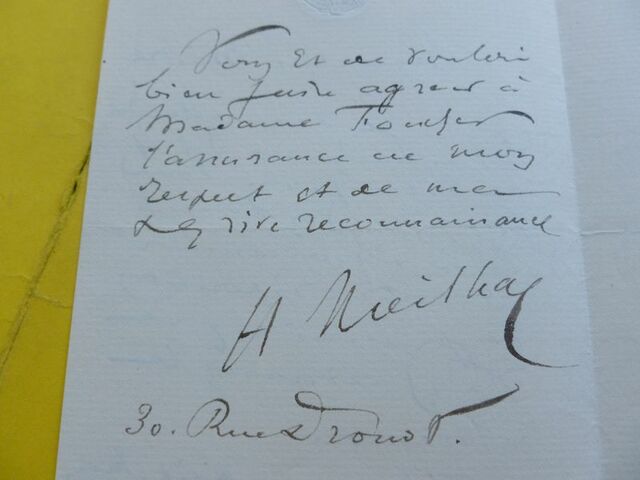 et de vouloir
bien faire agréer à
Madame
l'assurance de mon
respect et de ma
vive reconnaissance
H Meilhac
30. Rue Drouot.